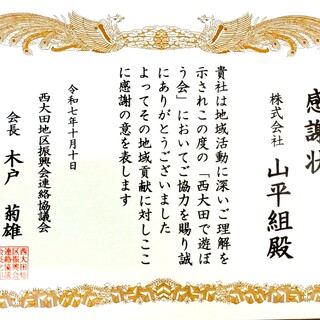 感謝状
株式会社 山平組殿
貴社は地域活動に深いご理解を
示されこの度の「西大田で遊ぼ
う会」においてご協力を賜り誠
にありがとうございました
よってその地域貢献に対しここ
に感謝の意を表します
令和七年十月十日
西大田地区振興会連絡協議会
会長 木戸 菊雄